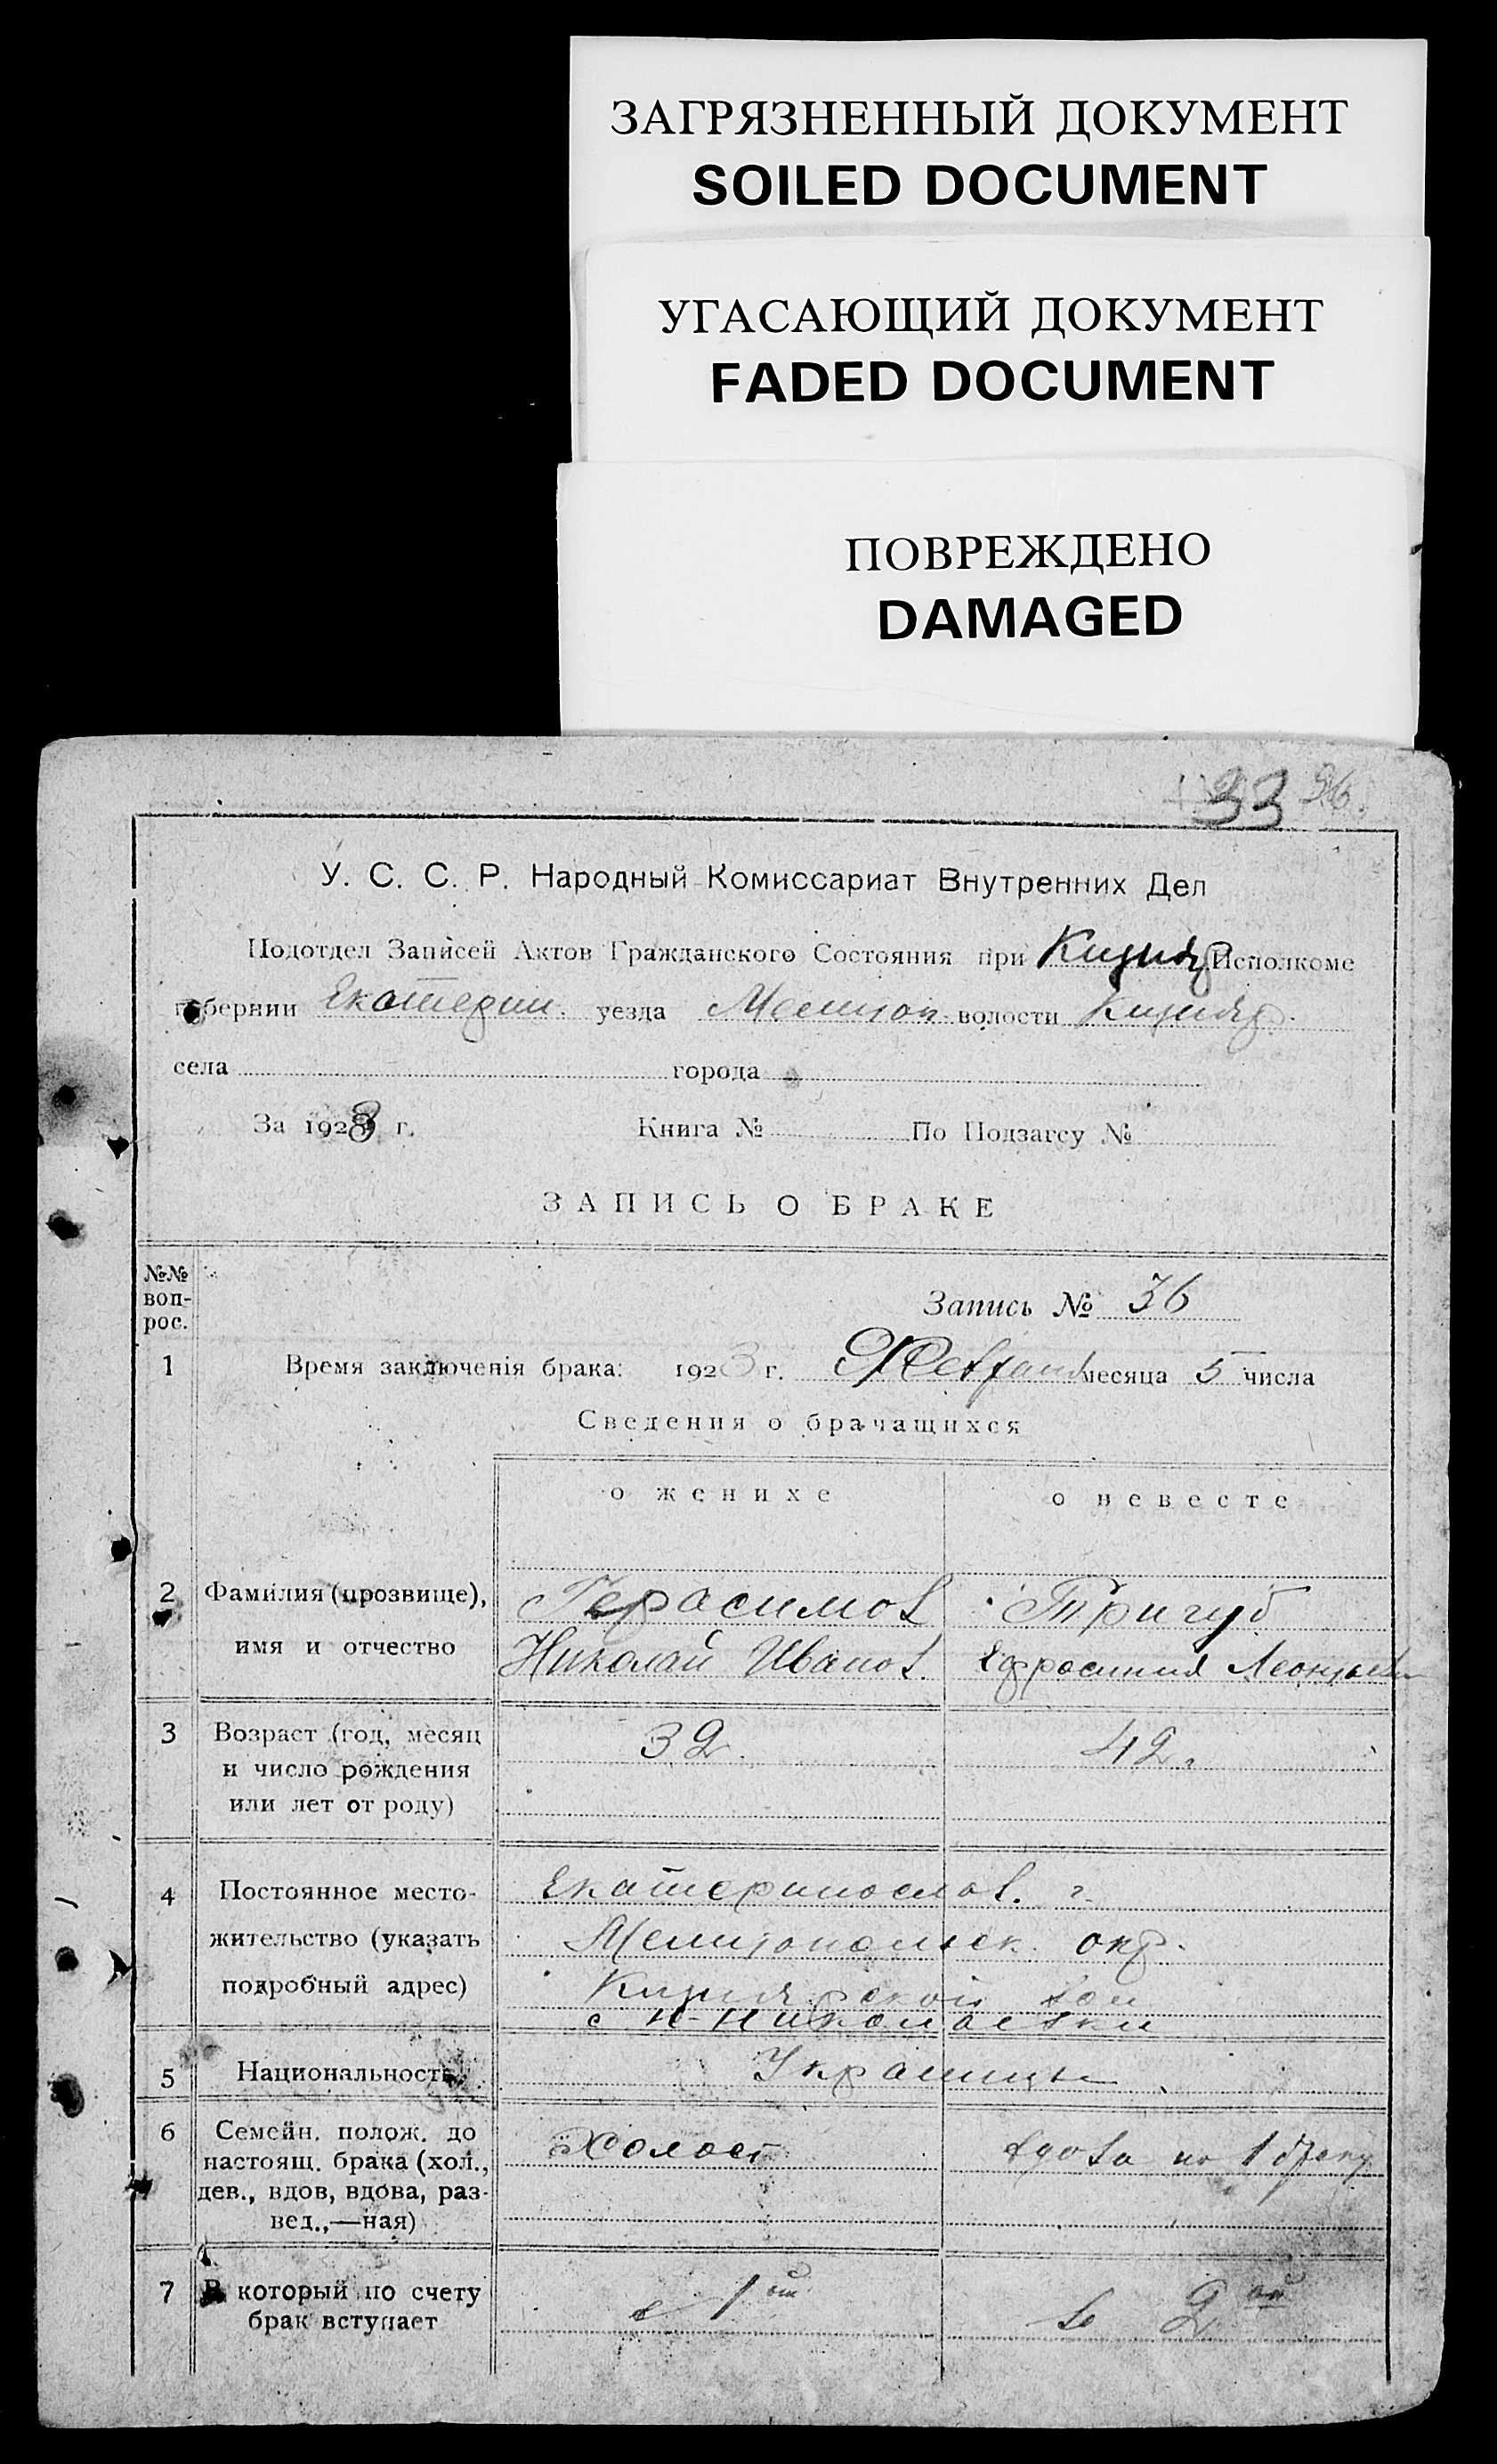 ЗАГРЯЗНЕННЫЙ ДОКУМЕНТ
SOILED DOCUMENT
УГАСАЮЩИЙ ДОКУМЕНТ
FADED DOCUMENT
ПОВРЕЖДЕНО
DAMAGED
33 36.
У. С. С. Р. Народный Комиссариат Внутренних Дел
Подотдел Записей Актов Гражданского Состояния при Кизияр Исполкоме
губернии Екатерин. уезда Мелитоп. волости Кизияр.
села города
За 1923 г. Книга № По Подзагсу №
ЗАПИСЬ О БРАКЕ
№№ воп-рос.
Запись № 36
1 Время заключенія брака: 1923 г. месяца 5 числа
Сведения о брачащихся
о женихе о невесте
2 Фамилия (прозвище), Герасимов Тригуб
имя и отчество Николай Иванов. Ефросиния Леонтьев
3 Возраст (год, месяц 32. 42.
и число рождения
или лет от роду)
4 Постоянное место- Екатеринослав. г.
жительство (указать Мелитопольск. окр.
подробный адрес) Кизиярской вол
с Н-Николаевки
5 Национальность Украинцы
6 Семейн. полож. до Холост вдова по 1 браку
настоящ. брака (хол.,
дев., вдов, вдова, раз-
вед.,—ная)
7 В который по счету в 1ый во 2ой
брак вступает